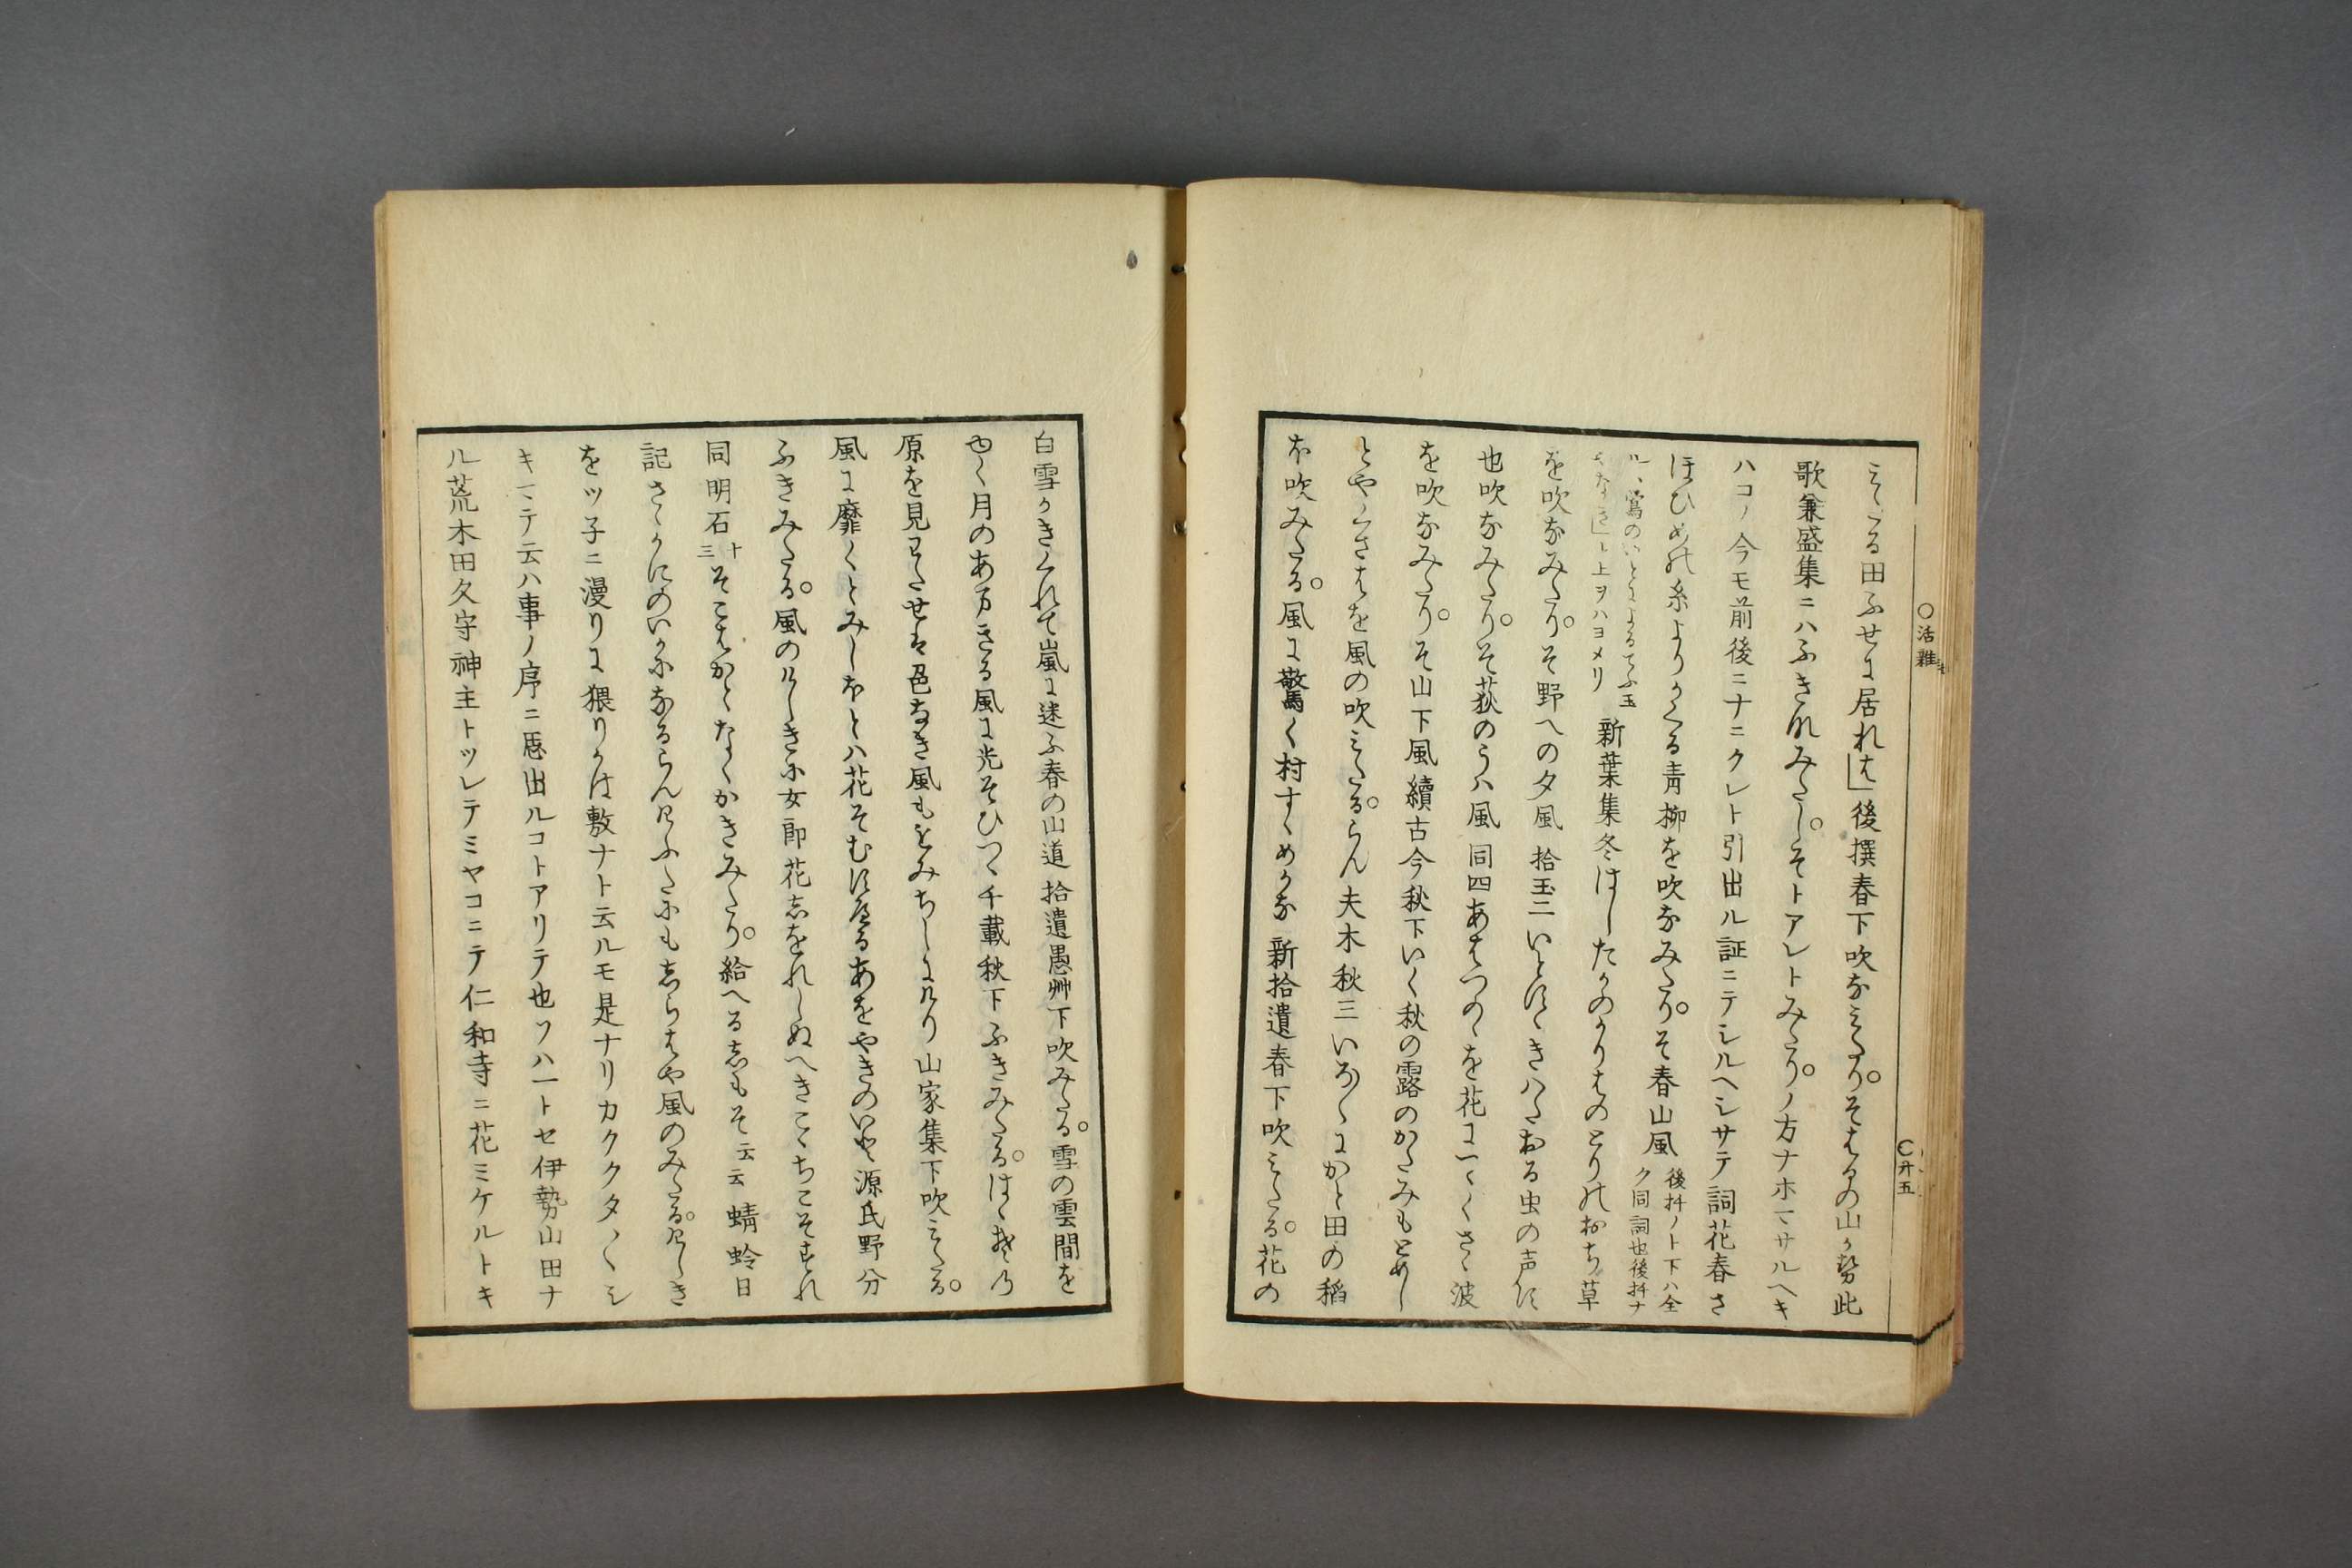 ○活雑
○廿五
みたる田ふせに居れは」後撰春下吹なみたりそはるの山かせ此
歌兼盛集ニハふきなみたしそトアレトみたりノ方ナホマサルヘキ
ハコノ今モ前後ニナニクレト引出ル証ニテシルヘシサテ詞花春さ
ほひめの糸よりかくる青柳を吹なみたりそ春山風
後抖ノト下ハ全
ク同詞也後抖ナ
ルヽ鶯のいとによるてふ玉
」ト上ヲハヨメリ
新葉集冬はしたかのかりはのとりのおち草
を吹なみたりそ野への夕風 拾玉二いとすゝきはたおる虫の声す
也吹なみたりそ荻のうハ風 同四あはつのゝを花に
を吹なみたりそ山下風 續古今秋下いく秋の露のかたみもとめし
とやくさはを風の吹みたるらん 夫木秋三いろ〳〵にかと田の稲
を吹みたる風に驚く村すゝめかな 新拾遺春下吹みたる花の
白雪かきくれて嵐に迷ふ春の山道 拾遺愚艸下吹みたる雪の雲間を
ゆく月のあまきる風に光そひつゝ 千載秋下ふきみたるはゝその
原を見わたせは色なき風ももみちしにけり 山家集下吹みたる
風に靡くとみしほとハ花そむすへるあをやきのいと 源氏野分
ふきみたる風のけしきに女郎花しをれしぬへきこゝちこそすれ
同明石十三そこはかとなくかきみたり給へるしもそ云云 蜻蛉日
記さゝかにのいかになるらんけふたにもしらはや風のみたるけしき
をツ子ニ漫りに猥りかは敷ナト云ルモ是ナリカククタ〳〵シ
キマテ云ハ事ノ序ニ思出ルコトアリテ也ソハ一トセ伊勢山田ナ
ル荒木田久守神主トツレテミヤコニテ仁和寺ニ花ミケルトキ